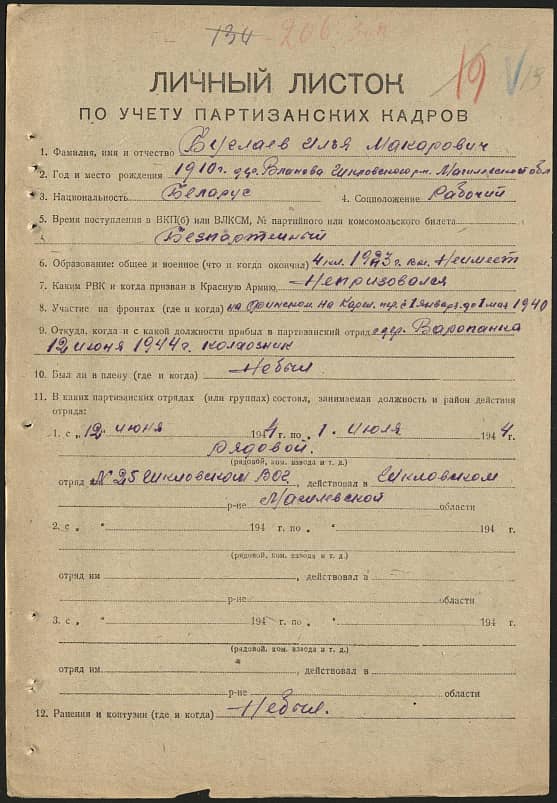 134 - 206
19 V 13
ЛИЧНЫЙ ЛИСТОК
ПО УЧЕТУ ПАРТИЗАНСКИХ КАДРОВ
1. Фамилия, имя и отчество Илья Макарович
2. Год и место рождения 1910 г. дер. Шкловского рн. Магилевской обл
3. Национальность Беларус 4. Соцположение Рабочий
5. Время поступления в ВКП(б) или ВЛКСМ, № партийного или комсомольского билета
Безпартейный
6. Образование: общее и военное (что и когда окончил) 4 кл. 1923 г. Неимеет
7. Каким РВК и когда призван в Красную Армию Непризовался
8. Участие на фронтах (где и когда) на Финском на с 1 января до 1 мая 1940
9. Откуда, когда и с какой должности прибыл в партизанский отряд с дер. Варопанка
12 июня 1944 г. колхозник
10. Был ли в плену (где и когда) Небыл.
11. В каких партизанских отрядах (или группах) состоял, занимаемая должность и район действия
отряда:
1. с „12" июня 1944 г. по „1" июля 1944 г.
Рядовой.
(рядовой, ком. взвода и т. д.)
отряд им. № 25 Шкловской ВОГ, действовал в Шкловском
р-не Магилевской области
2. с „ " 194 г. по „ " 194 г.
(рядовой, ком. взвода и т. д.)
отряд им , действовал в
р-не области
3. с „ " 194 г. по „ " 194 г.
(рядовой, ком. взвода и т. д.)
отряд им. , действовал в
р-не области
12. Ранения и контузии (где и когда) Небыл.